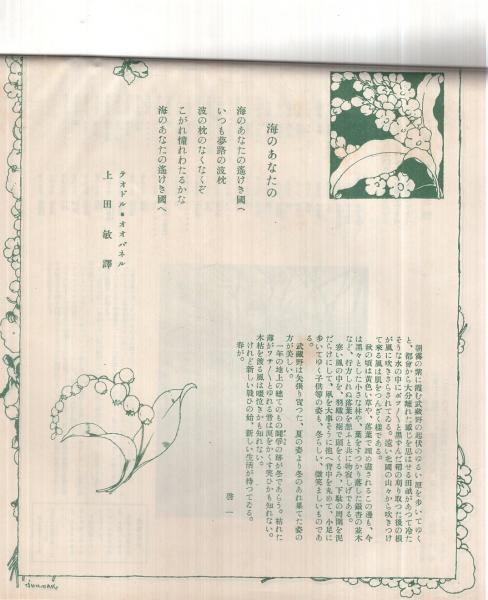 海のあなたの
海のあなたの遙けき國へ
いつも夢路の波枕
波の枕のなくなくぞ
こがれ憧れわたるかな
海のあなたの遙けき國へ
テオドル・オオバネル
上田敏譯
朝霧の紫に霞む武藏野の起伏のゆるい原を歩いてゆく
と、都會から大分離れた感じを思はせる田畝があつて冷た
そうな水の中にポツ〳〵と黒ずんだ稻の刈り取つた後の根
が風に吹きさらされてゐる。遠い北國の山々から吹きつけ
て來る風は肌をつんざく樣である。
秋の頃は黄色い草や、落葉で埋め盡されるこの邊も、今
は黒々とした小さな林や、葉をすつかり落した銀杏の並木
など、行方しれぬ落葉を想ふと共に物寂しげである。
寒い風の中を、羽織の裾で頭をくるみ、下駄の周圍を泥
だらけにして、風を大事そうに抱へ背中を丸めて、小足に
歩いてゆく子供等の姿も、冬らしい、微笑ましいものであ
る。
武藏野は矢張り寳つた、夏の姿より冬のあれ果てた姿の
方が美しい。
一年の地上の總てのものの闘爭の跡が冬であらう。枯れた
薄がフサ〳〵とゆれる音は涙をかくす笑ひかも知れない。
木枯を渡る風は啜り泣きかも知れない。
けれど新しい戰ひの始、新しい生活が待つてゐる。
春が。
啓一